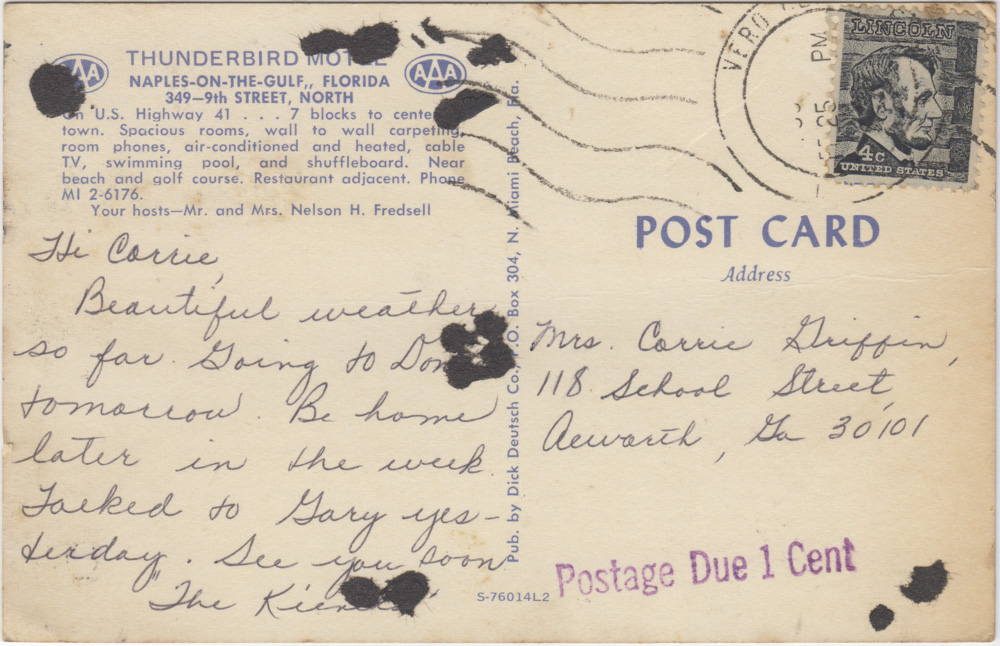 THUNDERBIRD
NAPLES-ON-THE-GULF,, FLORIDA
349—9th STREET, NORTH
AAA
AAA
U.S. Highway 41 . . . 7 blocks to
town. Spacious rooms, wall to wall carpeting,
room phones, air-conditioned and heated, cable
TV, swimming pool, and shuffleboard. Near
beach and golf course. Restaurant adjacent. Phone
MI 2-6176.
Your hosts—Mr. and Mrs. Nelson H. Fredsell
Hi Corrie,
Beautiful weather
so far. Going to
tomorrow. Be home
later in the week.
Talked to Gary yes-
terday. See you soon
"The
Pub. by Dick Deutsch Co., P.O. Box 304, N. Miami Beach, Fla.
S-76014L2
VERO
PM
LINCOLN
4c
UNITED STATES
POST CARD
Address
Mrs. Corrie Griffin,
118 School Street,
Acworth, Ga 30101
Postage Due 1 Cent